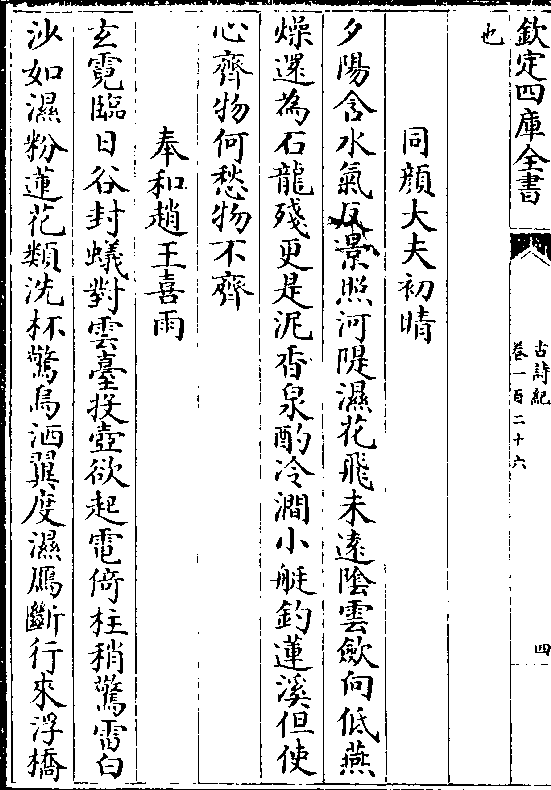 欽定四庫全書
古詩紀
卷一百二十六
四
也
同顔大夫初晴
夕陽含水氣反景照河隄濕花飛未遠陰雲斂向低燕
燥還為石龍殘更是泥香泉酌冷澗小艇釣蓮溪但使
心齊物何愁物不齊
奉和趙王喜雨
玄霓臨日谷封蟻對雲臺投壺欲起電倚柱稍驚雷白
沙如濕粉蓮花類洗杯驚鳥洒翼度濕鴈斷行來浮橋